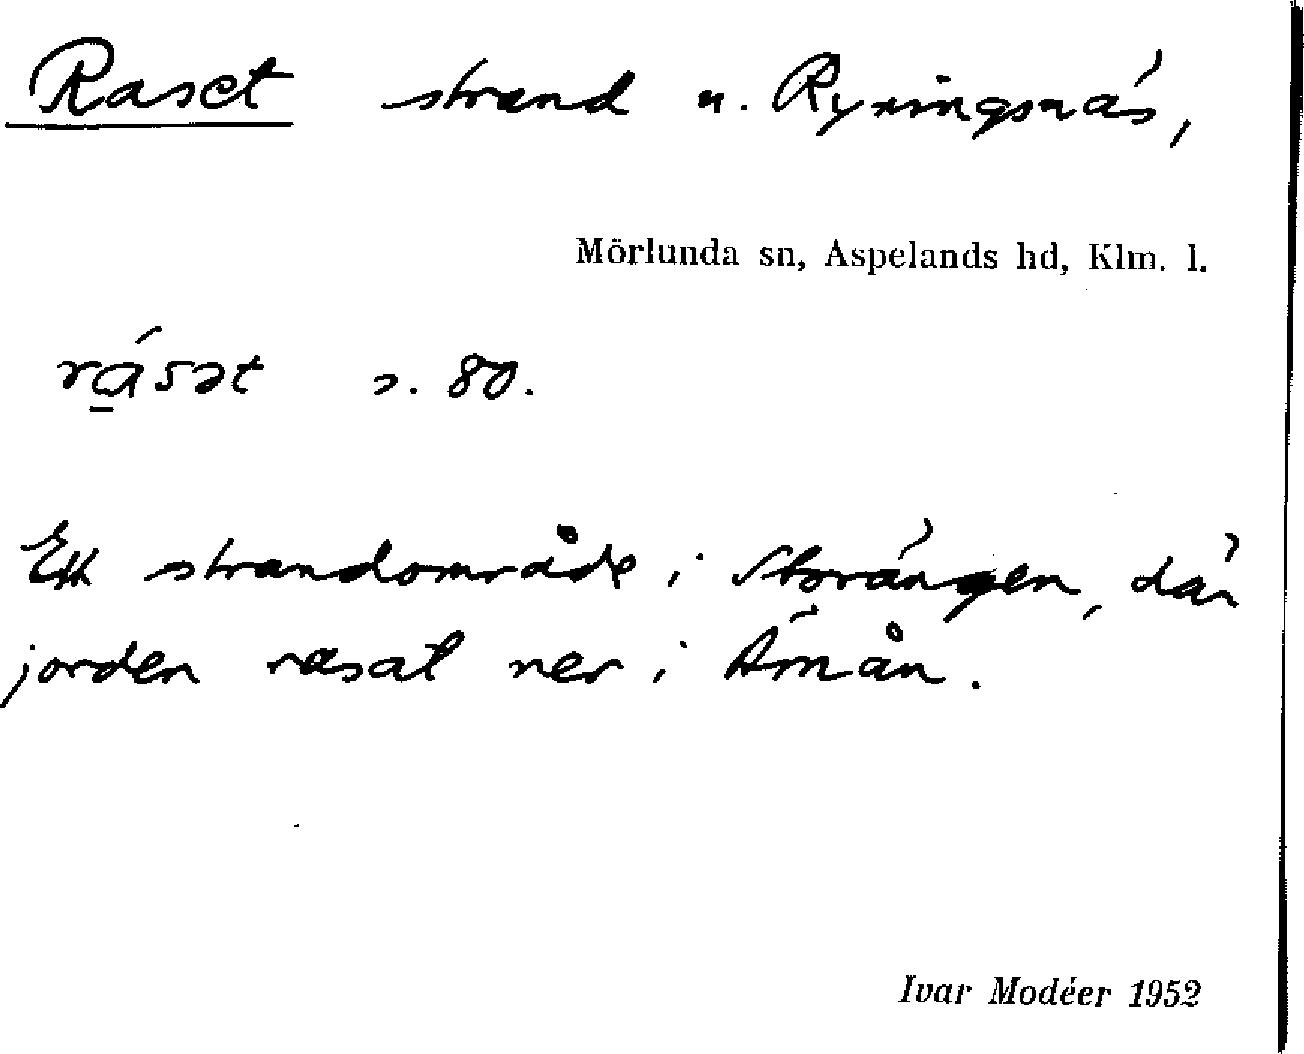 Raset strand u. Ryningsnäs,
Mörlunda sn, Aspelands hd, Klm. l.
rá̱sət s. 80.
Ett strandområde i Storängen, där
jorden rasat ner i Ämån.
Ivar Modéer 1952